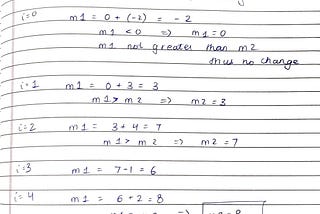 i=0 m1 = 0 + (-2) = -2
m1 < 0 => m1=0
m1 not greater than m2
thus no change
i=1 m1 = 0+3 = 3
m1 > m2 => m2 = 3
i=2 m1 = 3+4 = 7
m1 > m2 => m2 = 7
i=3 m1 = 7-1 = 6
i=4 m1 = 6+2 = 8